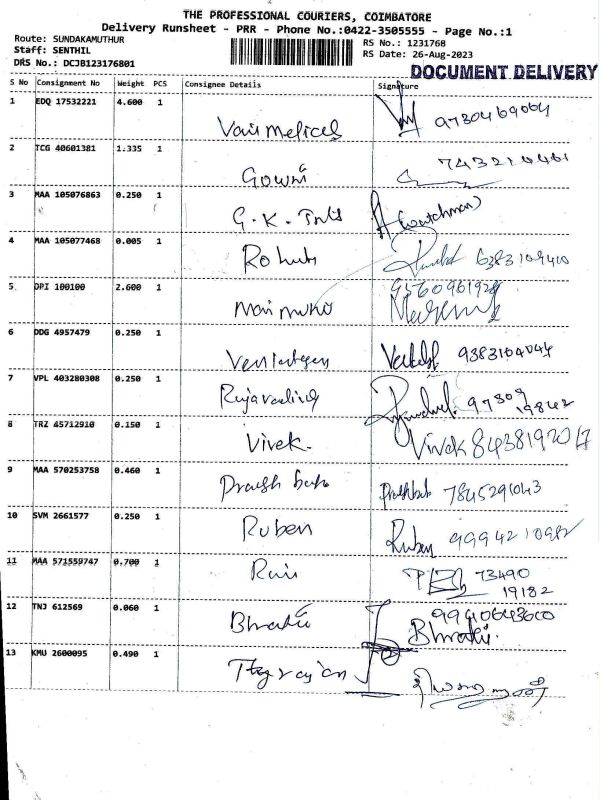 THE PROFESSIONAL COURIERS, COIMBATORE
Delivery Runsheet - PRR - Phone No.:0422-3505555 - Page No.:1
Route: SUNDAKAMUTHUR RS No.: 1231768
Staff: SENTHIL RS Date: 26-Aug-2023
DRS No.: DCJB123176801
DOCUMENT DELIVERY
S No Consignment No Weight PCS Consignee Details Signature
1 EDQ 17532221 4.600 1
2 TCG 40601381 1.335 1 Gowri
3 MAA 105076863 0.250 1 G.K. (watchman)
4 MAA 105077468 0.005 1
5 DPI 100100 2.600 1
6 DDG 4957479 0.250 1 9383104047
7 VPL 403280308 0.250 1 97809
19842
8 TRZ 45712910 0.150 1 Vivek. Vivek 8438192017
9 MAA 570253758 0.460 1 7845291043
10 SVM 2661577 0.250 1 Ruben Ruben 9994210982
11 MAA 571559747 0.700 1 73490
19182
12 TNJ 612569 0.060 1 Bharathi 9940643600
Bharathi.
13 KMU 2600095 0.490 1 Thyrajan 2